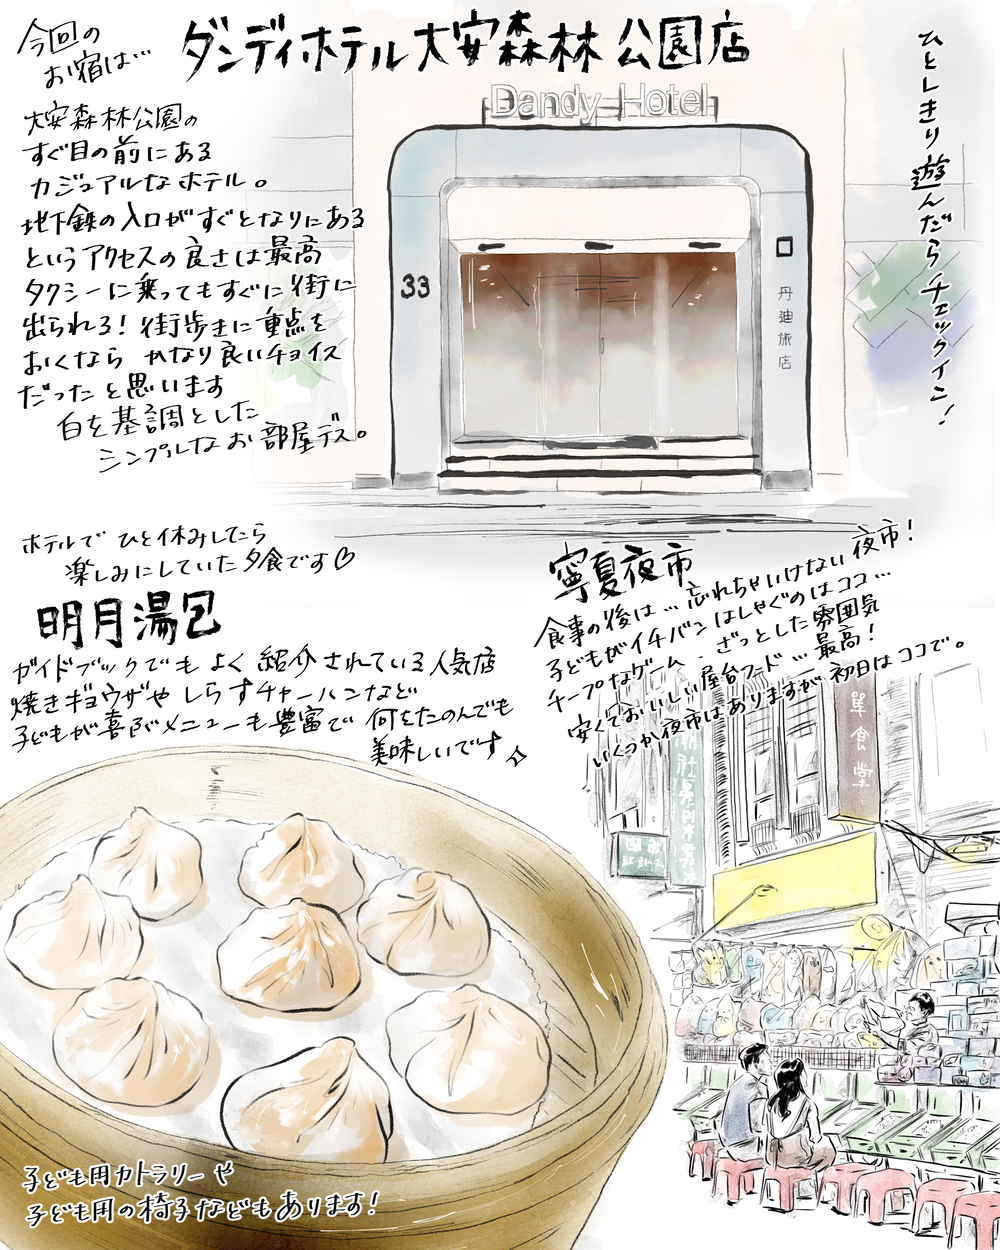 今回の
お宿は…
ダンディホテル大安森林公園店
ひとしきり遊んだらチェックイン！
大安森林公園の
すぐ目の前にある
カジュアルなホテル。
地下鉄の入口がすぐとなりにある
というアクセスの良さは最高
タクシーに乗ってもすぐに街に
出られる！街歩きに重点を
おくなら かなり良いチョイス
だったと思います
白を基調とした
シンプルなお部屋デス。
Dandy Hotel
33
丹迪旅店
ホテルでひと休みしてたら
楽しみにしていた夕食です♡
明月湯包
ガイドブックでもよく紹介されている人気店
焼きギョウザやしらすチャーハンなど
子どもが喜ぶメニューも豊富で 何をたのんでも
美味しいです
寧夏夜市
食事の後は…忘れちゃいけない夜市！
子どもがイチバンはしゃぐのはココ…
チープなゲーム、ざっとした雰囲気
安くておいしい屋台フード…最高！
いくつか夜市はありますが初日はココで。
食堂
子ども用カトラリーや
子ども用の椅子などもあります！